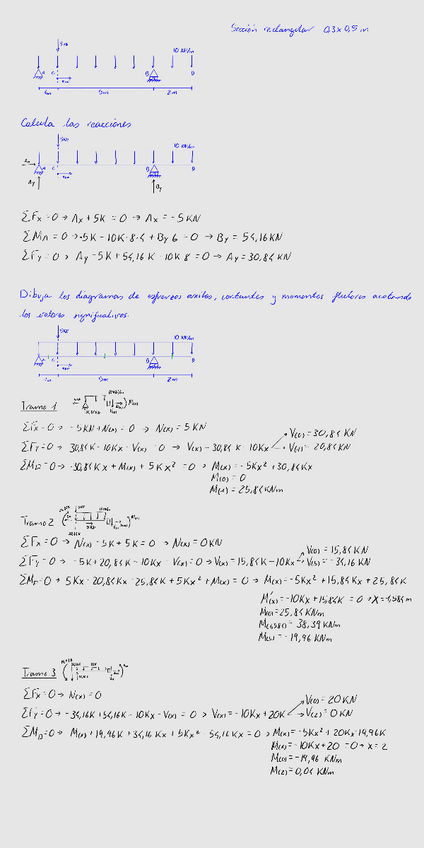 Sección rectangular 0,3 x 0,5 m
5KN
10 KN/m
A C B D
1m 5m 2m
Calcula las reacciones
5KN
10 KN/m
Ay By
ΣFx = 0 → Ax + 5K = 0 → Ax = -5 KN
ΣMA = 0 → -5K - 10K · 8 · 4 + By 6 = 0 → By = 54,16 KN
ΣFy = 0 → Ay - 5K + 54,16K - 10K · 8 = 0 → Ay = 30,84 KN
Dibuja los diagramas de esfuerzos axiles, cortantes y momentos flectores acotando
los valores significativos.
5KN
10 KN/m
1m 5m 2m
Tramo 1
ΣFx = 0 → -5KN + N(x) = 0 → N(x) = 5 KN
ΣFy = 0 → 30,84K - 10Kx - V(x) = 0 → V(x) = 30,84K - 10Kx
V(0) = 30,84 KN
V(1) = 20,84 KN
ΣMD = 0 → -30,84Kx + M(x) + 5Kx² = 0 → M(x) = -5Kx² + 30,84Kx
M(0) = 0
M(1) = 25,84 KNm
Tramo 2
ΣFx = 0 → N(x) - 5K + 5K = 0 → N(x) = 0 KN
ΣFy = 0 → -5K + 20,84K - 10Kx - V(x) = 0 → V(x) = 15,84K - 10Kx
V(0) = 15,84 KN
V(5) = -34,16 KN
ΣMD = 0 → 5Kx - 20,84Kx - 25,84K + 5Kx² + M(x) = 0 → M(x) = -5Kx² + 15,84Kx + 25,84K
M'(x) = -10Kx + 15,84K = 0 → x = 1,584 m
M(0) = 25,84 KNm
M(1,584) = 38,39 KNm
M(5) = -19,96 KNm
Tramo 3
ΣFx = 0 → N(x) = 0
ΣFy = 0 → -34,16K + 54,16K - 10Kx - V(x) = 0 → V(x) = -10Kx + 20K
V(0) = 20 KN
V(2) = 0 KN
ΣMD = 0 → M(x) + 19,96K + 34,16Kx + 5Kx² - 54,16Kx = 0 → M(x) = -5Kx² + 20Kx - 19,96K
M'(x) = -10Kx + 20K = 0 → x = 2
M(0) = -19,96 KNm
M(2) = 0,04 KNm